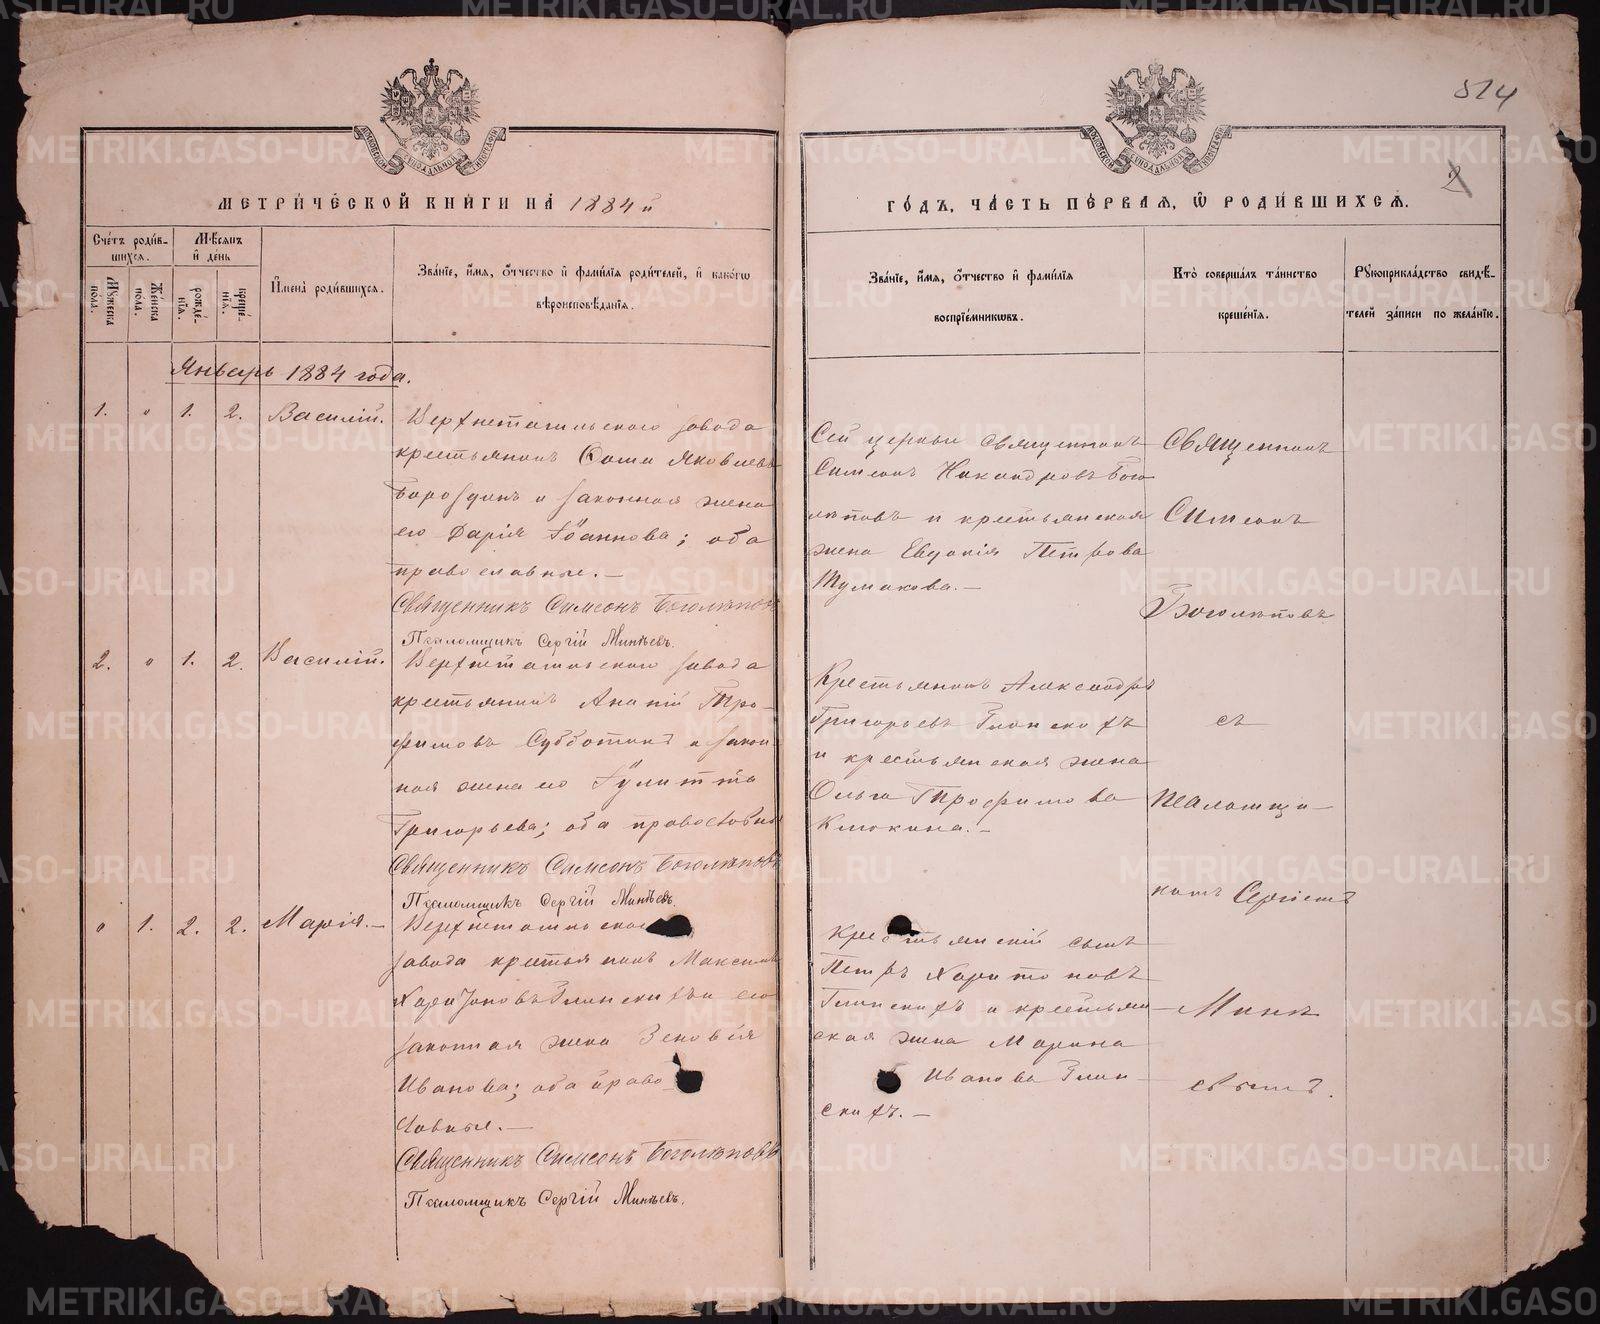 514
2
МОСКОВСКОЙ СѴНОДАЛЬНОЙ ТИПОГРАФІИ
МОСКОВСКОЙ СѴНОДАЛЬНОЙ ТИПОГРАФІИ
МЕТРИ́ЧЕСКОЙ КНИ́ГИ НА̀ 1884 й
ГО́ДЪ, ЧА́СТЬ ПЕ́РВАЯ, Ѡ РОДИ́ВШИХСЯ.
Сче́тъ роди́в-
шихся.
Мѣ́сяцъ
и́ де́нь
Му́жеска
по́ла.
Же́нска
по́ла.
рожде́-
нїя.
креще́-
нїя.
И́мена̀ роди́вшихся.
Зва́нїе, и́мя, о́тчество и́ фами́лїя роди́телей, и́ како́гѡ
вѣроисповѣ́данїя.
Зва́нїе, и́мя, о́тчество и́ фами́лїя
воспрїе́мникѡвъ.
Кто̀ соверша́лъ та́инство
креще́нїя.
Рꙋкоприкла́дство свидѣ́-
телей за́писи по жела́нїю.
Январь 1884 года.
1. " 1. 2. Василій.
Верхнетагильскаго завода
крестьянинъ Яковлевъ
Бороздинъ и законная жена
его Дарія Іоаннова; оба
православные.—
Священникъ Симеонъ Боголѣповъ
Псаломщикъ Сергій Минѣевъ.
Сей церкви священникъ
Симеонъ Никандровъ Бого
лѣповъ и крестьянская
жена Евдокія Петрова
Тумакова.—
Священникъ
Симеонъ
Боголѣповъ
2. " 1. 2. Василій.
Верхнетагильскаго завода
крестьянинъ Ананій Тро-
фимовъ Субботинъ и закон-
ная жена его Іулитта
Григорьева; оба православны
Священникъ Симеонъ Боголѣповъ
Псаломщикъ Сергій Минѣевъ.
Крестьянинъ Александръ
Григорьевъ Глинскихъ
и крестьянская жена
Ольга Трофимова
Клюкина.—
съ
псаломщи-
комъ Сергіемъ
" 1. 2. 2. Марія.—
Верхнетагильскаго
завода крестьянинъ Максимъ
Харитоновъ Глинскихъ и его
законная жена Зеновія
Иванова; оба право-
славные.—
Священникъ Симеонъ Боголѣповъ
Псаломщикъ Сергій Минѣевъ.
Крестьянскій сынъ
Петръ Харитоновъ
Глинскихъ и крестьян
ская жена Марина
Иванова Глин-
скихъ.—
Минѣ
евымъ.
METRIKI.GASO-URAL.RU